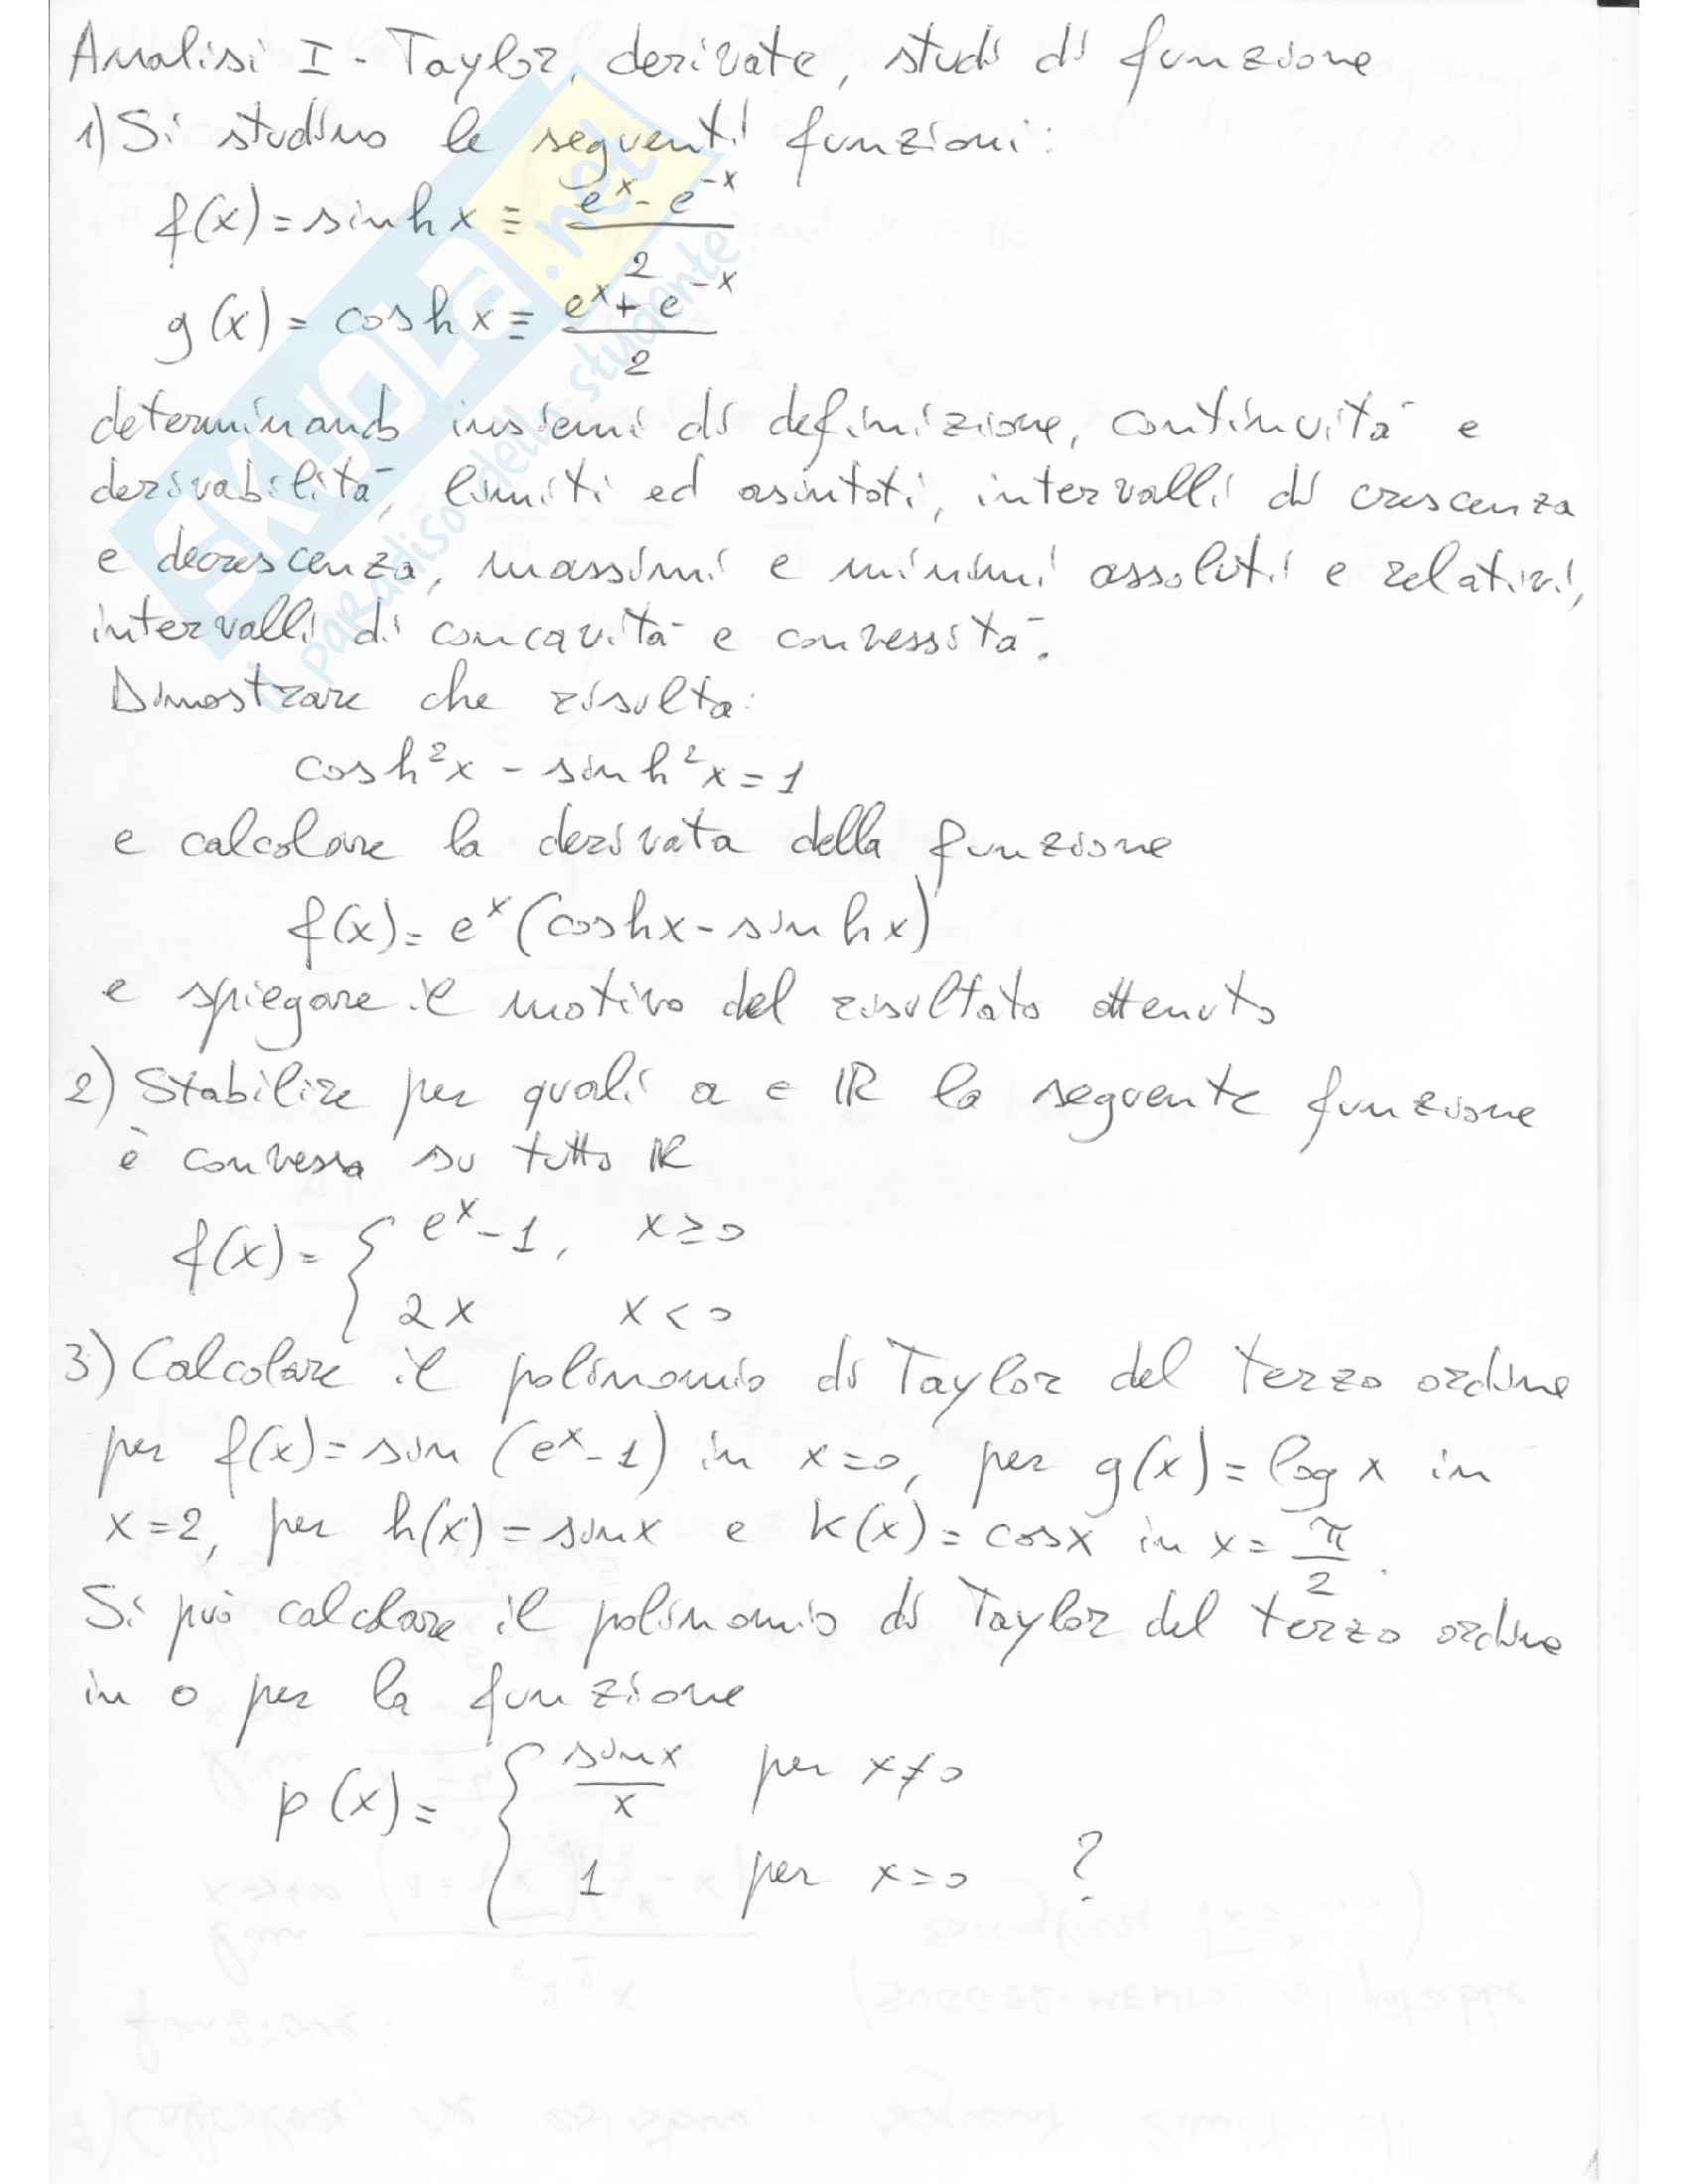 Analisi I - Taylor, derivate, studi di funzione
1) Si studino le seguenti funzioni:
f(x) = sinh x ≡ (e^x - e^-x)/2
g(x) = cosh x ≡ (e^x + e^-x)/2
determinando insiemi di definizione, continuità e
derivabilità, limiti ed asintoti, intervalli di crescenza
e decrescenza, massimi e minimi assoluti e relativi,
intervalli di concavità e convessità.
Dimostrare che risulta:
cosh²x - sinh²x = 1
e calcolare la derivata della funzione
f(x) = e^x (cosh x - sinh x)
e spiegare il motivo del risultato ottenuto
2) Stabilire per quali a ∈ ℝ la seguente funzione
è convessa su tutto ℝ
f(x) = { e^x - 1, x ≥ 0
2x x < 0
3) Calcolare il polinomio di Taylor del terzo ordine
per f(x) = sin (e^x - 1) in x = 0, per g(x) = log x in
x = 2, per h(x) = sin x e k(x) = cos x in x = π/2.
Si può calcolare il polinomio di Taylor del terzo ordine
in 0 per la funzione
p(x) = { sin x / x per x ≠ 0
1 per x = 0 ?
SKUOLA.net
il paradiso dello studente
1